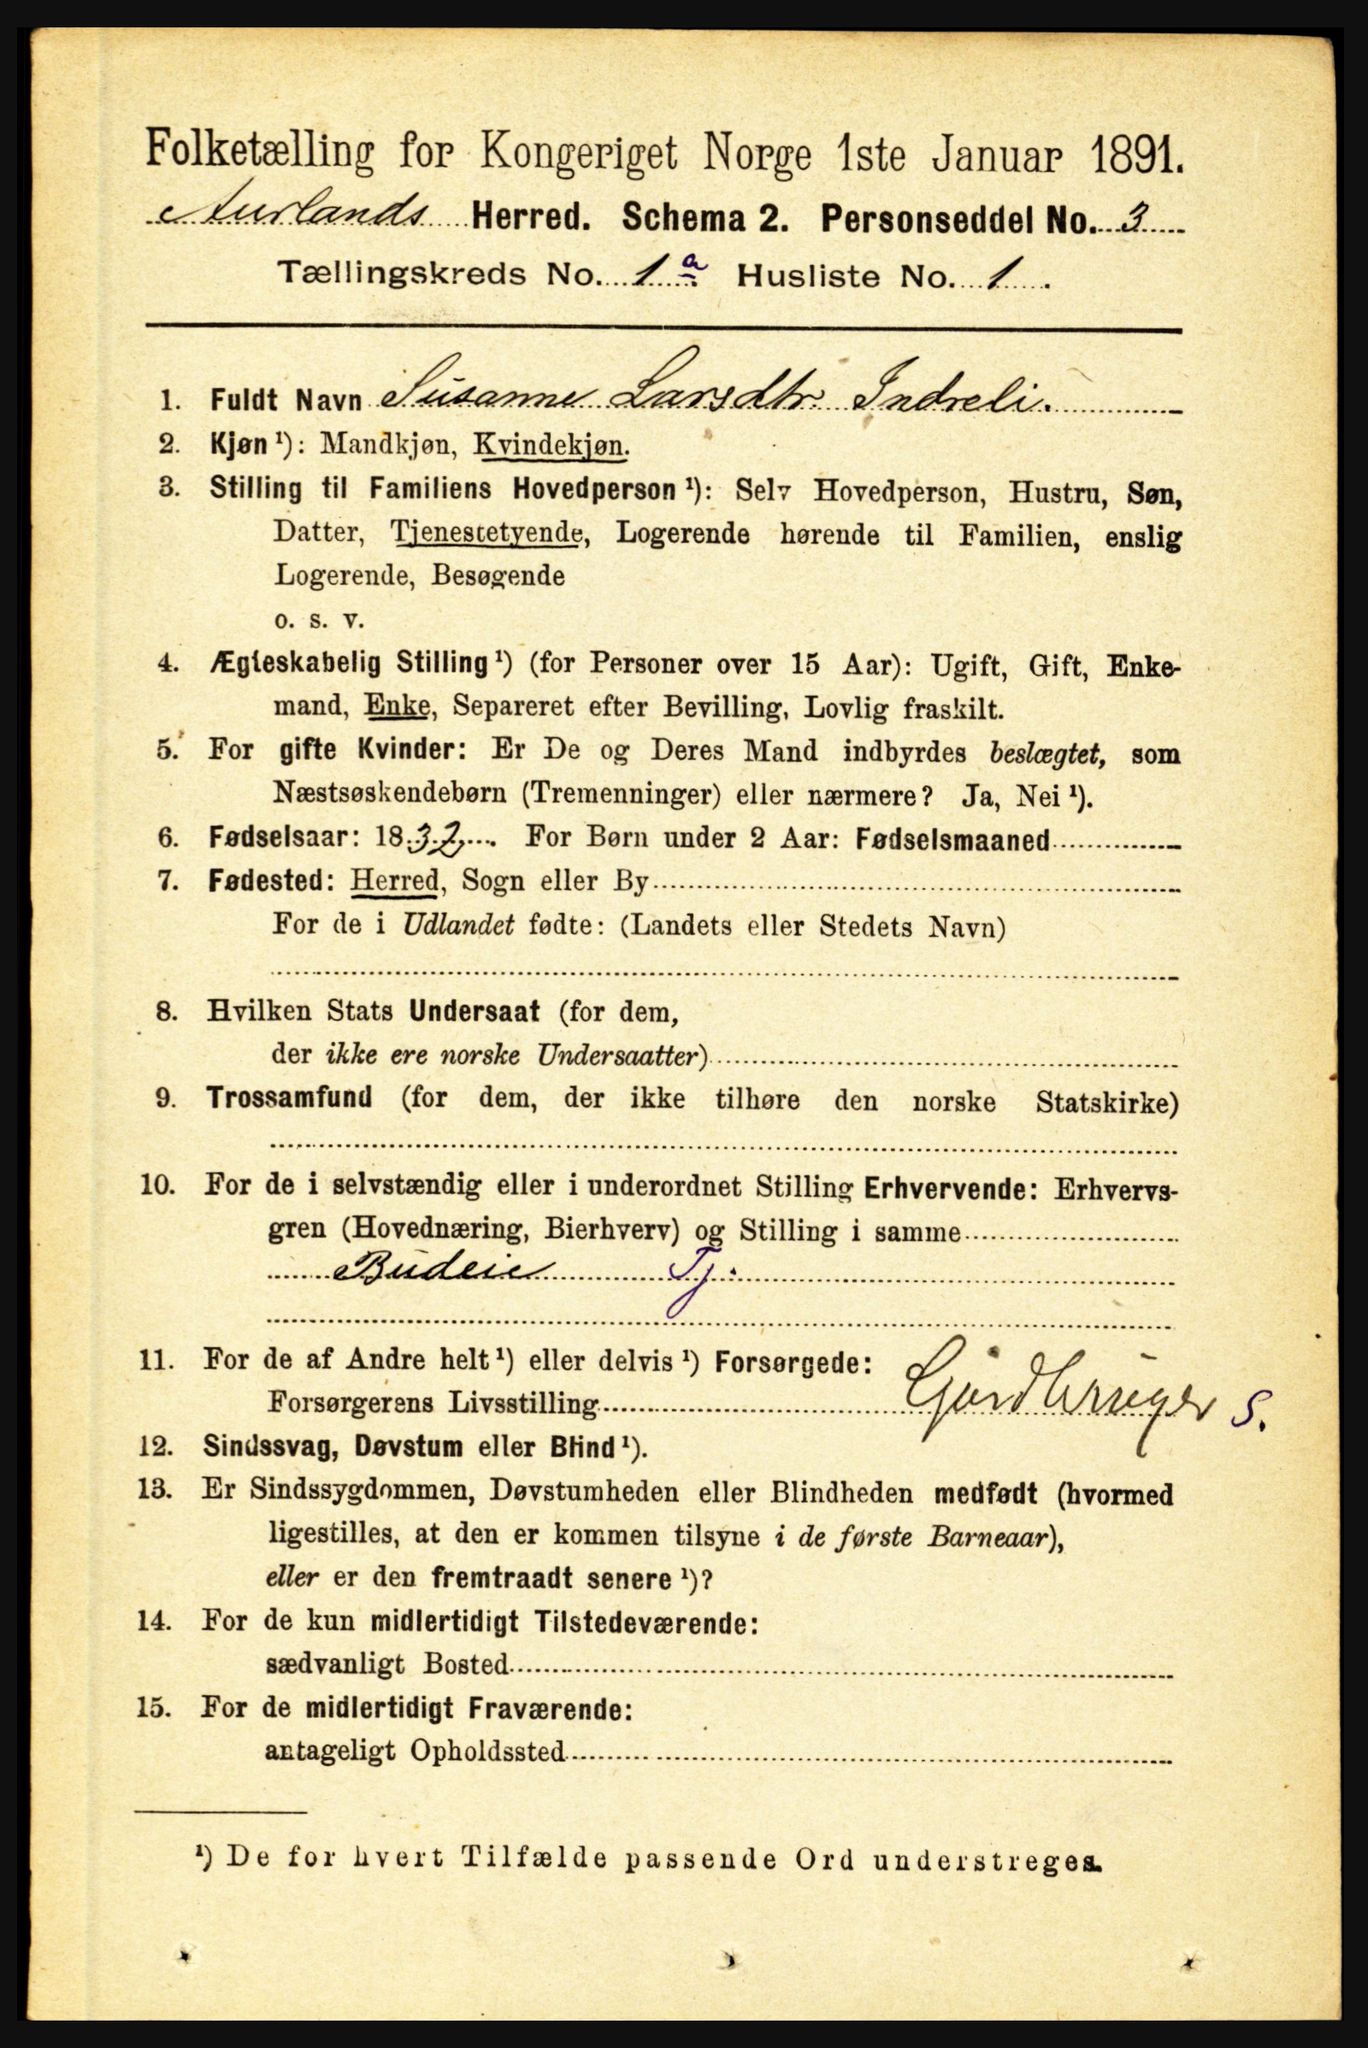 Folketælling for Kongeriget Norge 1ste Januar 1891.
Aurlands Herred. Schema 2. Personseddel No. 3
Tællingskreds No. 1 a Husliste No. 1.
1. Fuldt Navn Susanne Larsdtr. Indreli.
2. Kjøn¹): Mandkjøn, Kvindekjøn.
3. Stilling til Familiens Hovedperson¹): Selv Hovedperson, Hustru, Søn,
Datter, Tjenestetyende, Logerende hørende til Familien, enslig
Logerende, Besøgende
o. s. v.
4. Ægteskabelig Stilling¹) (for Personer over 15 Aar): Ugift, Gift, Enke-
mand, Enke, Separeret efter Bevilling, Lovlig fraskilt.
5. For gifte Kvinder: Er De og Deres Mand indbyrdes beslægtet, som
Næstsøskendebørn (Tremenninger) eller nærmere? Ja, Nei¹).
6. Fødselsaar: 1832. For Børn under 2 Aar: Fødselsmaaned
7. Fødested: Herred, Sogn eller By
For de i Udlandet fødte: (Landets eller Stedets Navn)
8. Hvilken Stats Undersaat (for dem,
der ikke ere norske Undersaatter)
9. Trossamfund (for dem, der ikke tilhøre den norske Statskirke)
10. For de i selvstændig eller i underordnet Stilling Erhvervende: Erhvervs-
gren (Hovednæring, Bierhverv) og Stilling i samme
Budeie Tj.
11. For de af Andre helt¹) eller delvis¹) Forsørgede:
Forsørgerens Livsstilling Gårdbruger S.
12. Sindssvag, Døvstum eller Blind¹).
13. Er Sindssygdommen, Døvstumheden eller Blindheden medfødt (hvormed
ligestilles, at den er kommen tilsyne i de første Barneaar),
eller er den fremtraadt senere¹)?
14. For de kun midlertidigt Tilstedeværende:
sædvanligt Bosted
15. For de midlertidigt Fraværende:
antageligt Opholdssted
¹) De for hvert Tilfælde passende Ord understreges.